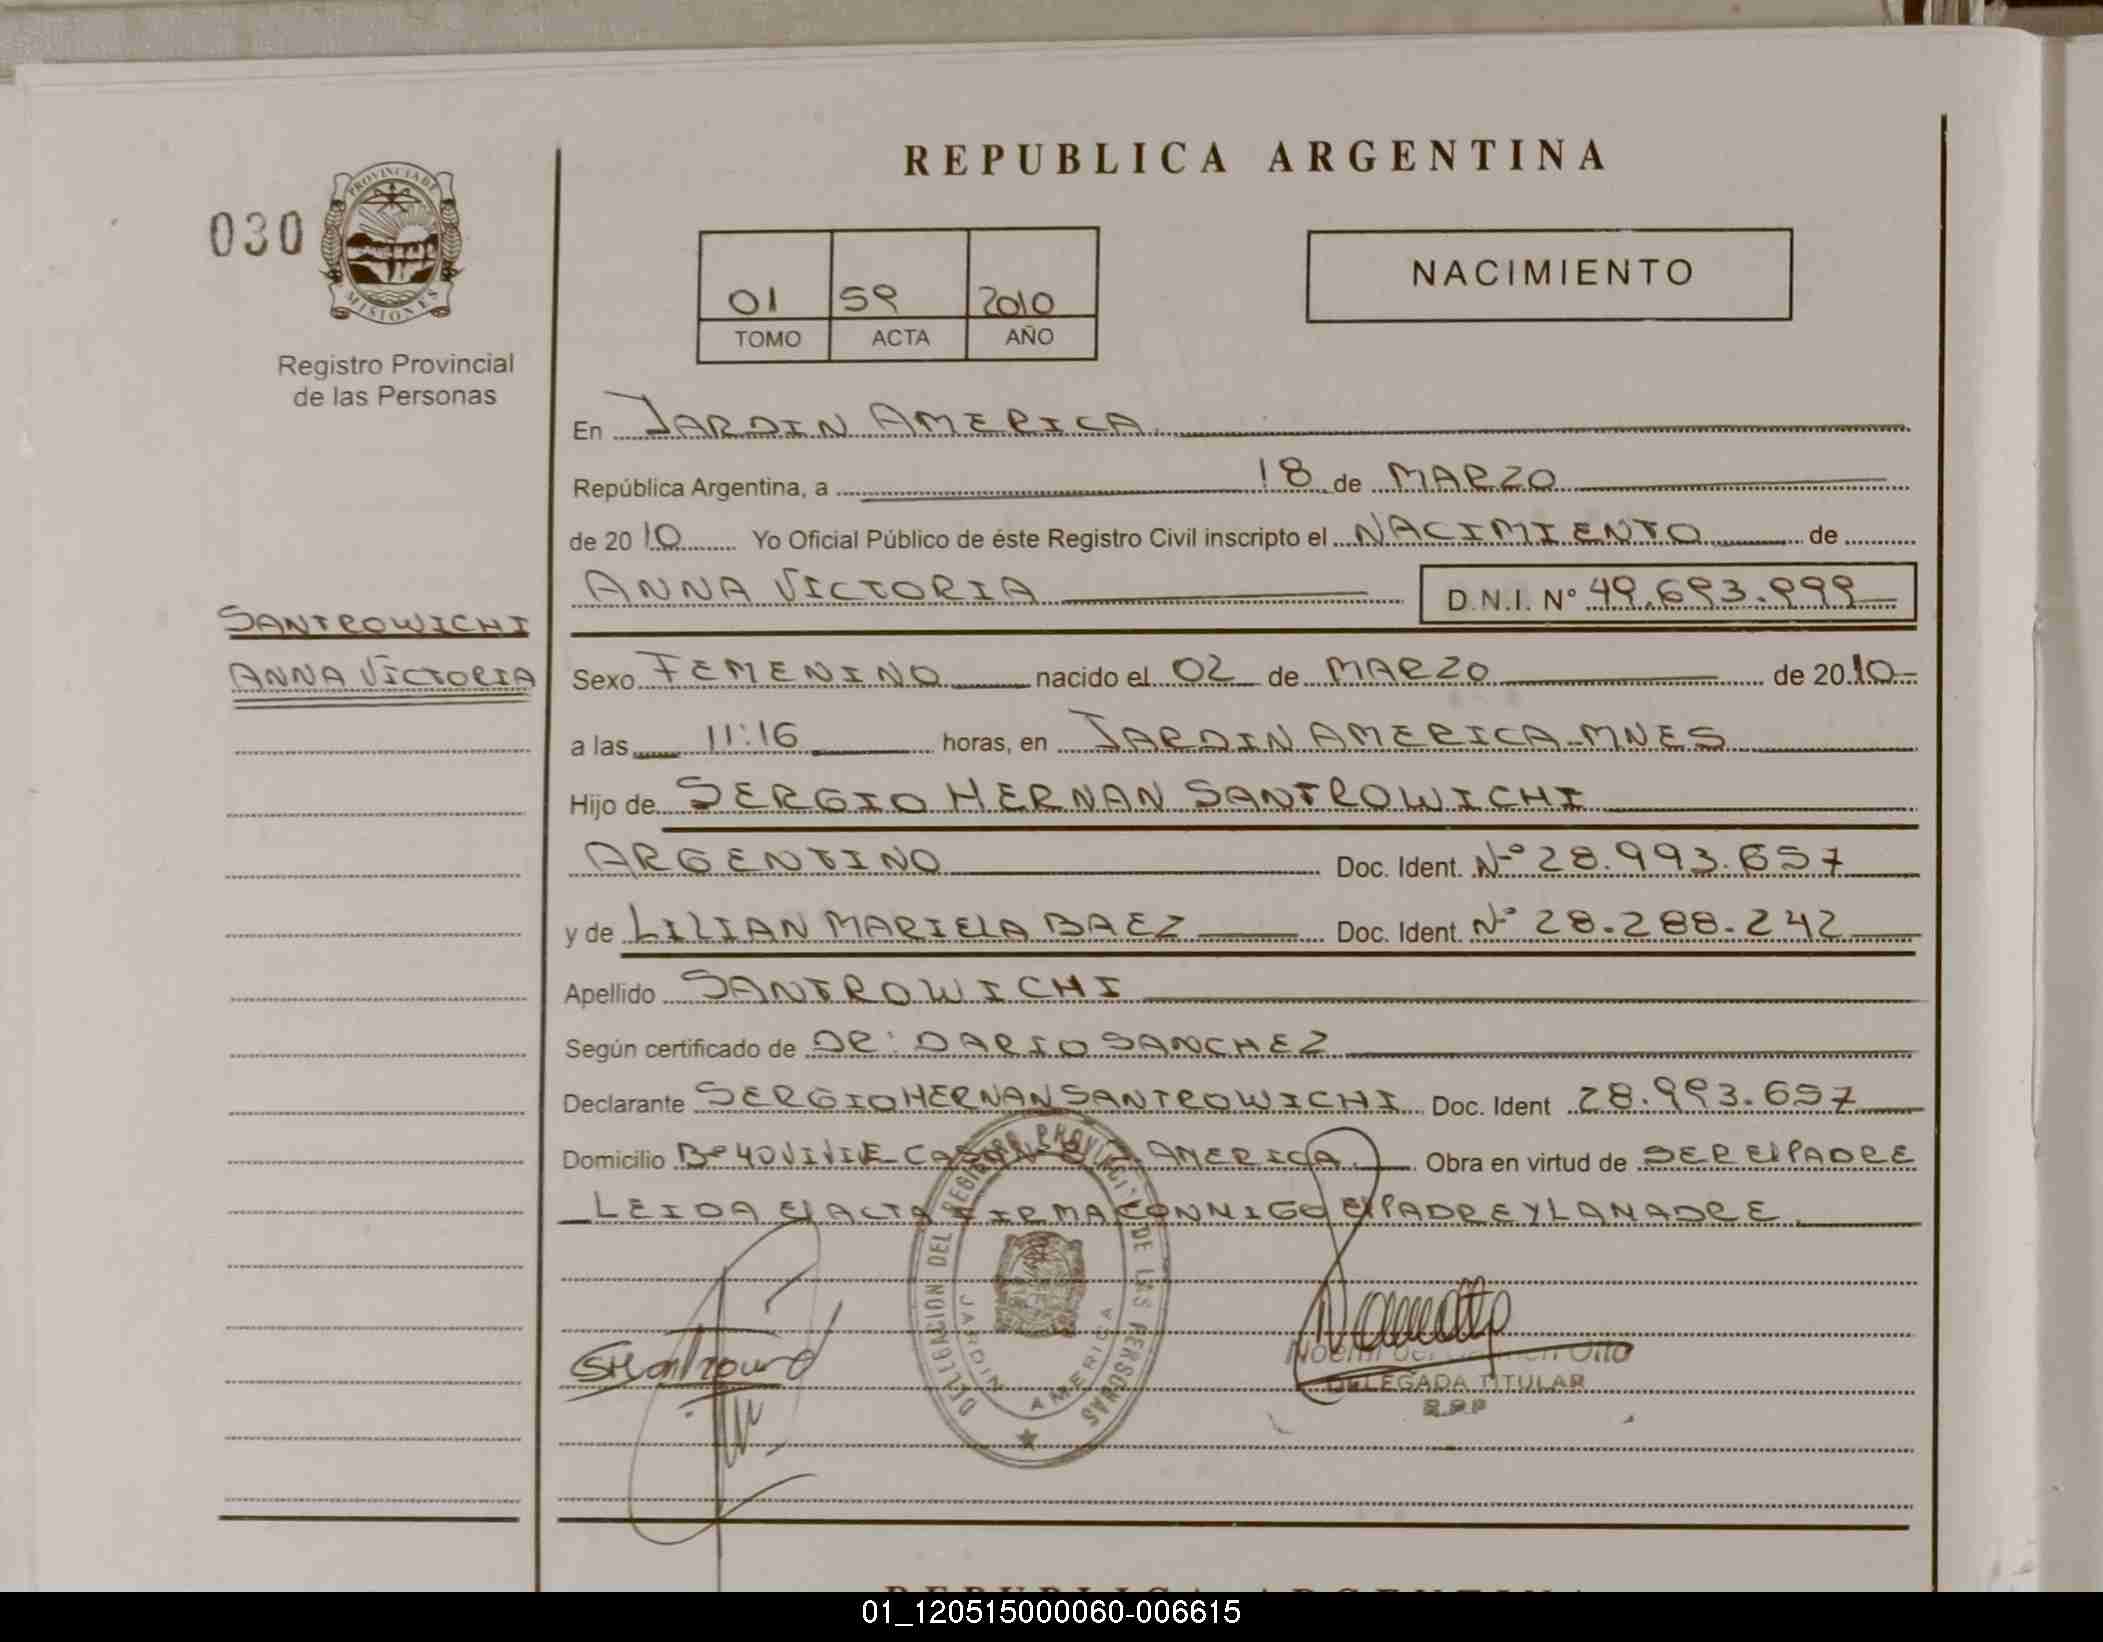 REPUBLICA ARGENTINA
030
PROVINCIA DE
MISIONES
Registro Provincial
de las Personas
01 59 2010
TOMO ACTA AÑO
NACIMIENTO
En JARDIN AMERICA
República Argentina, a 18 de MARZO
de 2010 Yo Oficial Público de éste Registro Civil inscripto el NACIMIENTO de
ANNA VICTORIA D.N.I. Nº 49.693.999
SANTROWICHI
ANNA VICTORIA
Sexo FEMENINO nacido el 02 de MARZO de 2010
a las 11:16 horas, en JARDIN AMERICA-MNES
Hijo de SERGIO HERNAN SANTROWICHI
ARGENTINO Doc. Ident. Nº 28.993.657
y de LILIAN MARIELA BAEZ Doc. Ident. Nº 28.288.242
Apellido SANTROWICHI
Según certificado de DR: DARIO SANCHEZ
Declarante SERGIO HERNAN SANTROWICHI Doc. Ident 28.993.657
Domicilio Bº 40 VIVIE CASA AMERICA Obra en virtud de SER El PADRE
LEIDA El ACTA FIRMA CONMIGO El PADRE Y LA MADRE
DELEGACION DEL REGISTRO PROVINCIAL DE LAS PERSONAS
JARDIN AMERICA
Noemi del Carmen Otto
DELEGADA TITULAR
R.P.P
REPUBLICA ARGENTINA
01_120515000060-006615